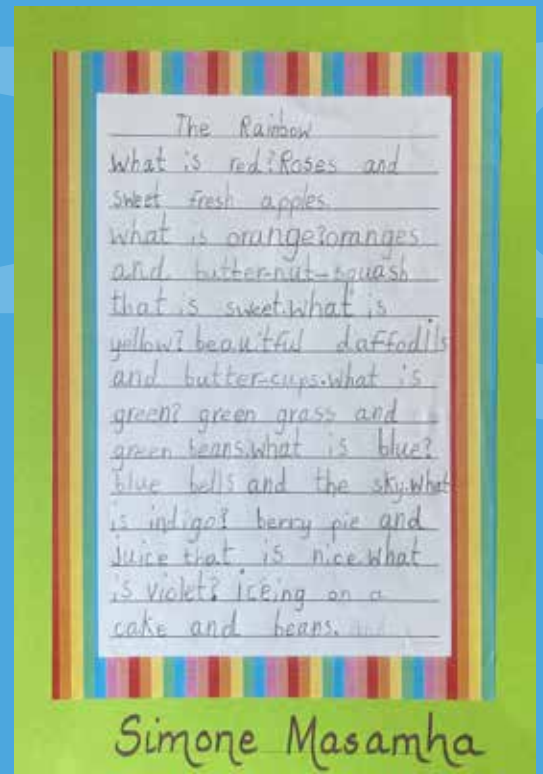 The Rainbow
What is red? Roses and
sweet fresh apples.
What is orange? oranges
and butter-nut-squash
that is sweet. what is
yellow? beautful daffodils
and butter-cups. what is
green? green grass and
green beans. what is blue?
blue bells and the sky. What
is indigo? berry pie and
juice that is nice. what
is violet? iceing on a
cake and beans.
Simone Masamha